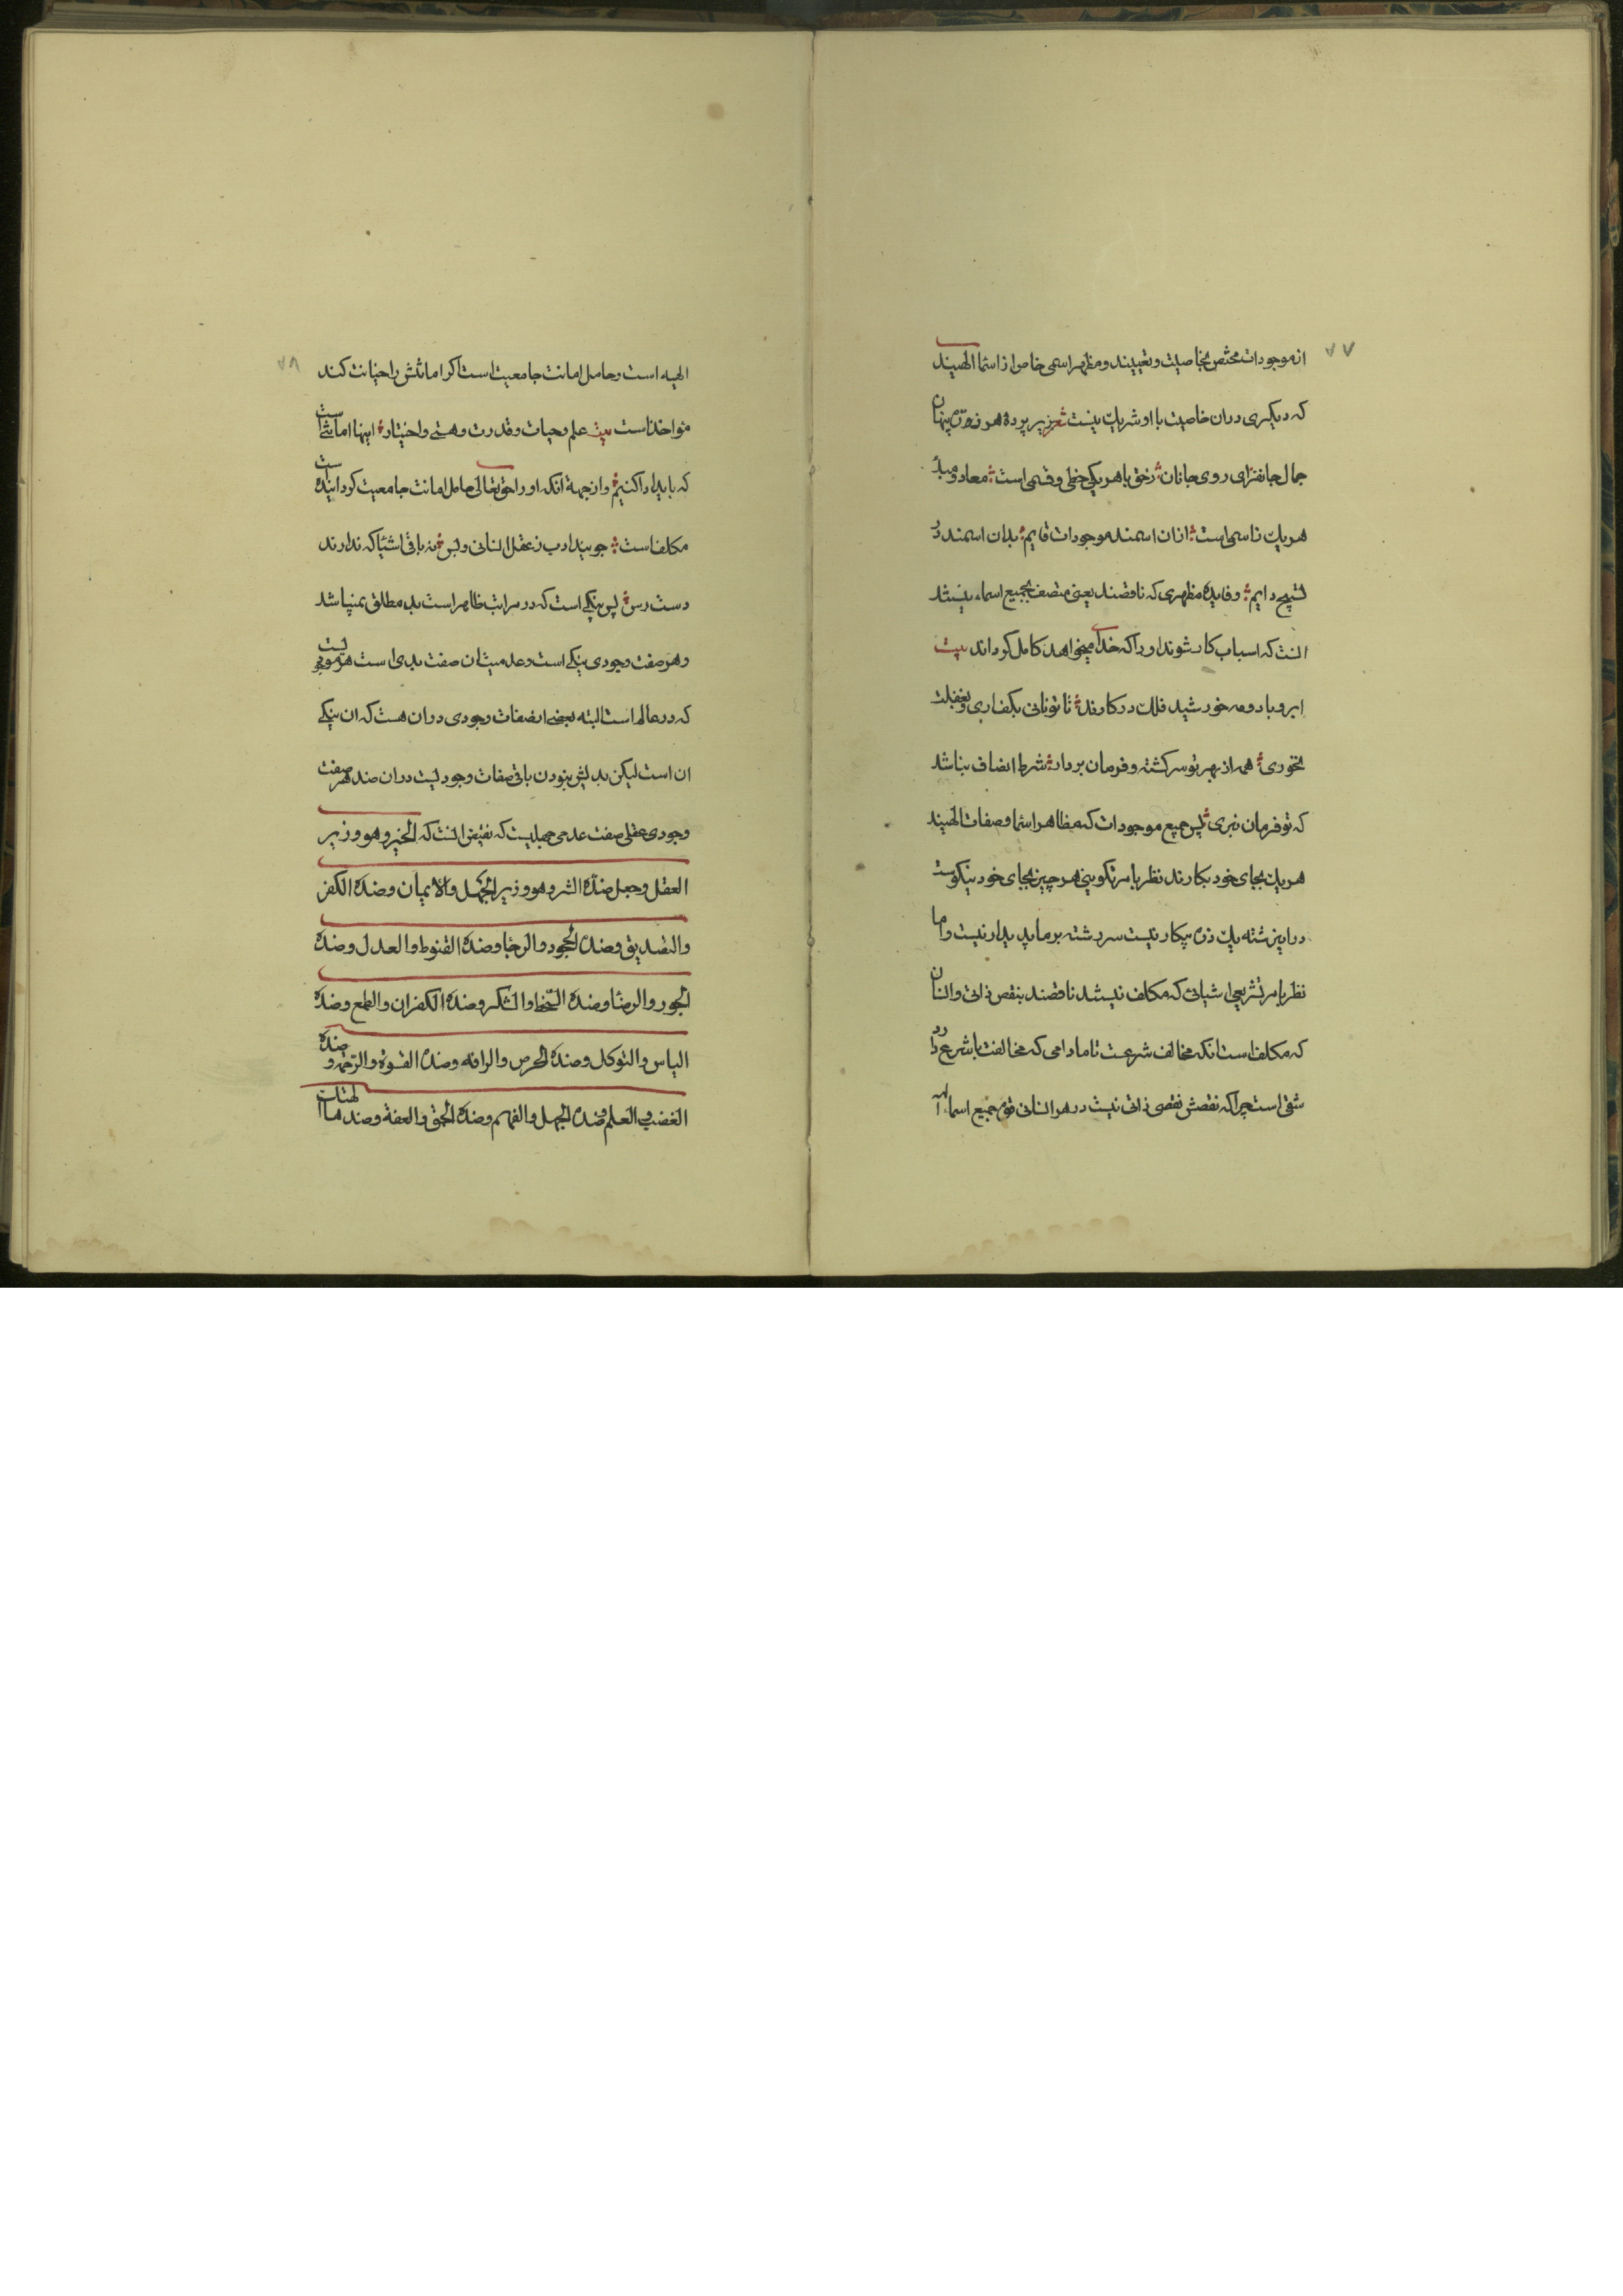 ۷۷
از موجودات مختص بخاصیت و تعینند و مظهر اسمی خاص از اسما الهیند
که دیکری دران خاصیت با او شریک نیست شعر بزیر پرده هر ذره پنهان
جمال جانفزای روی جانان ؛ زحق با هر یکی حظی و قسمی است ؛ معاد و مبدأ
هر یک ز اسمی است ؛ ازان اسمند موجودات قایم ؛ بدان اسمند در
تسبیح دایم ؛ و فایده مظهری که ناقصند یعنی متصف بجمیع اسماء نیستند
انست که اسباب کار شوند اورا که خدای میخواهد کامل کرداند بیت
ابر و باد و مه خورشید فلک در کارند ؛ تا تو نانی بکف اری و بغفلت
نخوری ؛ همه از بهر تو سرکشته و فرمان بردار ؛ شرط انصاف نباشد
که تو فرمان نبری ؛ پس جمیع موجودات که مظاهر اسما و صفات الهیند
هر یک بجای خود بکارند نظر بامر تکوینی هر چیز بجای خود نیکوست
درین رشته یک ذره بیکار نیست سر رشته بر ما پدیدار نیست و اما
نظر بامر تشریعی اشیائی که مکلف نیستند ناقصند بنقص ذاتی و انسان
که مکلف است انکه مخالف شرعست تا مادامی که مخالفت با شرع دارد
شقی است چرا که نقصش نقصی ذاتی نیست در هر انسانی قوه جمیع اسماء
۷۸
الهیه است و حامل امانت جامعیت است اکر امانتش را خیانت کند
مواخذ است بیت علم و حیات و قدرت و هستی و اختیار ؛ اینها امانتی است
که باید ادا کنیم ؛ و از جهة انکه اورا حق تعالی حامل امانت جامعیت کردانیده است
مکلف است ؛ جویند ادب ز عقل انسانی و بس ؛ نه باقی اشیا که ندارند
دست رس ؛ پس نیکی است که در مراتب ظاهر است بد مطلق نمیباشد
و هر صفت وجودی نیکی است و عدمیت ان صفت بدی است هر موجودیست
که در عالم است البته بعضی از صفات وجودی دران هست که ان نیکی
ان است لیکن بدیش نبودن باقی صفات وجودیست دران ضد هر صفت
وجودی عقلی صفت عدمی جهلیست که نقیض انست که الخیر و هو وزیر
العقل و جعل ضدّه الشر و هو وزیر الجهل والایمان و ضدّه الکفر
والتصدیق و ضدّه الجحود والرجا و ضدّه القنوط والعدل و ضدّه
الجور والرضا و ضدّه السّخط والشکر و ضدّه الکفران والطمع و ضدّه
الیاس والتوکل و ضدّه الحرص والرافه و ضدّه القسوة والرّحمة و ضدّه
الغضب والعلم و ضدّه الجهل والفهم و ضدّه الحمق والعفة و ضدها الهتک